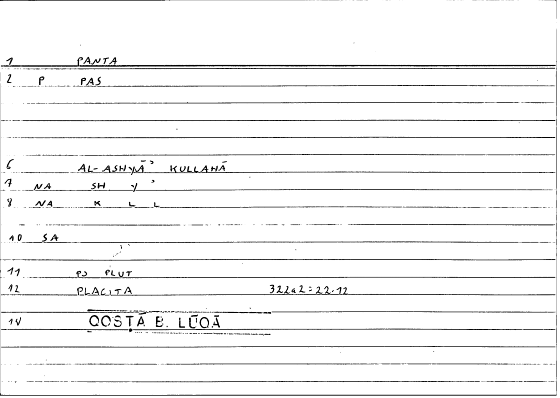 1 PANTA
2 P PAS
6 AL-ASHYĀʾ KULLAHĀ
7 NA SH Y ʾ
8 NA K L L
10 SA
11 PS PLUT
12 PLACITA 322a2=22.12
14 QOSṬĀ B. LŪQĀ